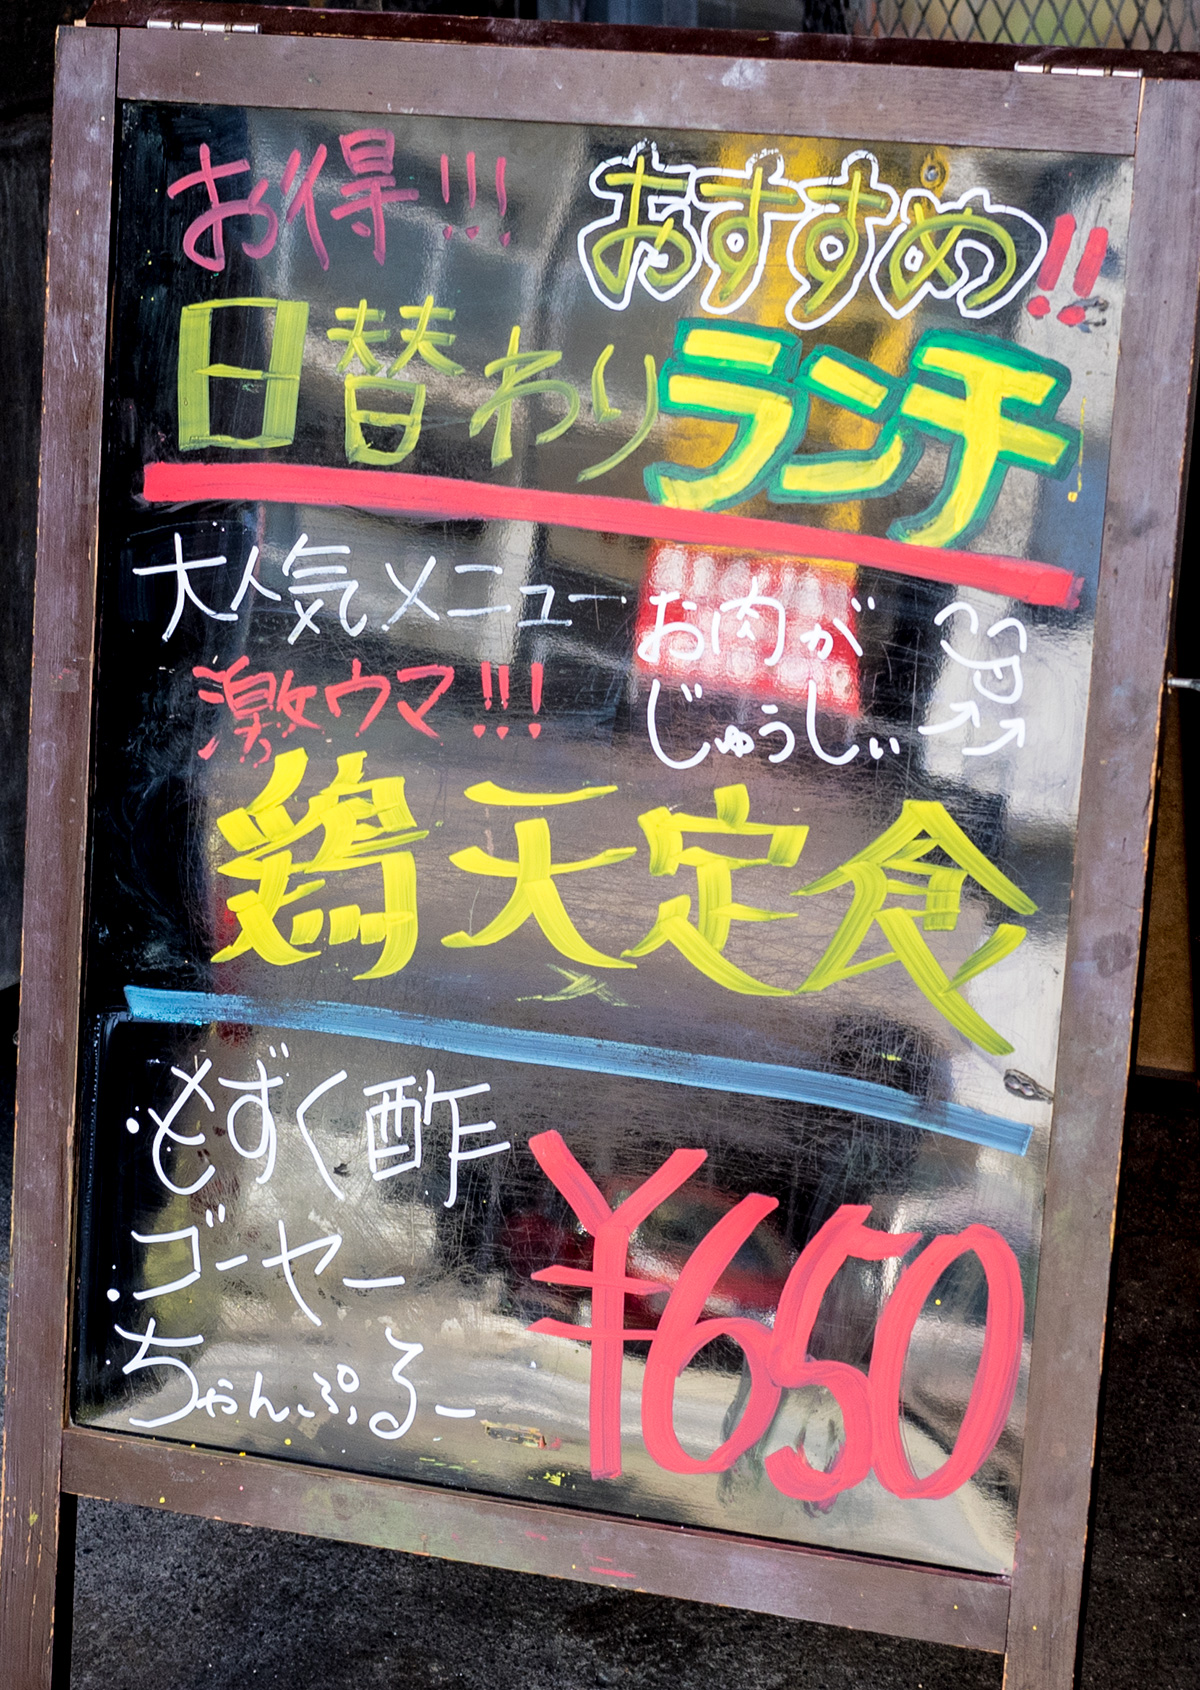 お得!!! おすすめ!!
日替わりランチ
大人気メニュー
お肉が
じゅうしぃ
激ウマ!!!
鶏天定食
・もずく酢
・ゴーヤー
ちゃんぷるー
¥650